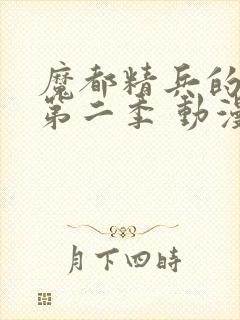 魔都精兵的
第二季 動漫
月下四時